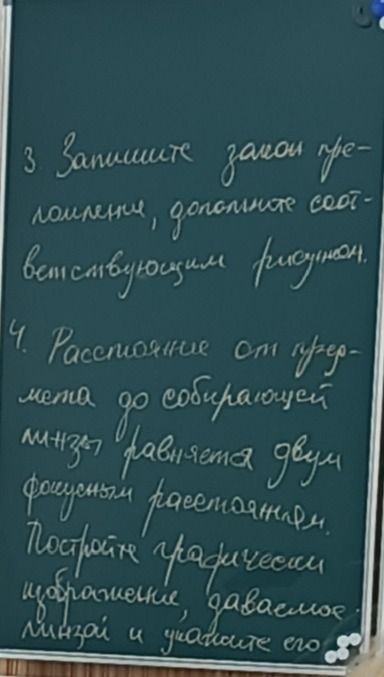 3. Запишите закон пре-
ломления, дополните соот-
ветствующим рисунком.
4. Расстояние от пред-
мета до собирающей
линзы равняется двум
фокусным расстояниям.
Постройте графически
изображение, даваемое
линзой и укажите его